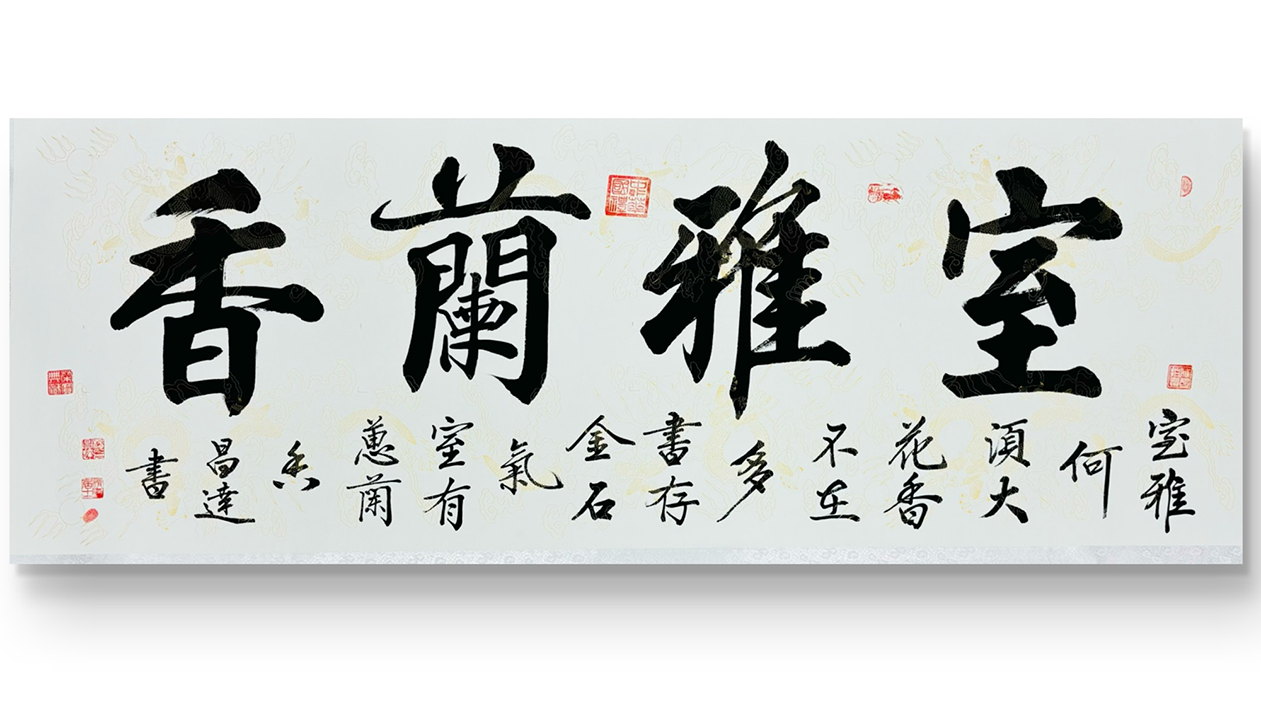 室雅蘭香
室雅
何
須大
花香
不在
多
書存
金石
氣
室有
蕙蘭
香
昌達
書